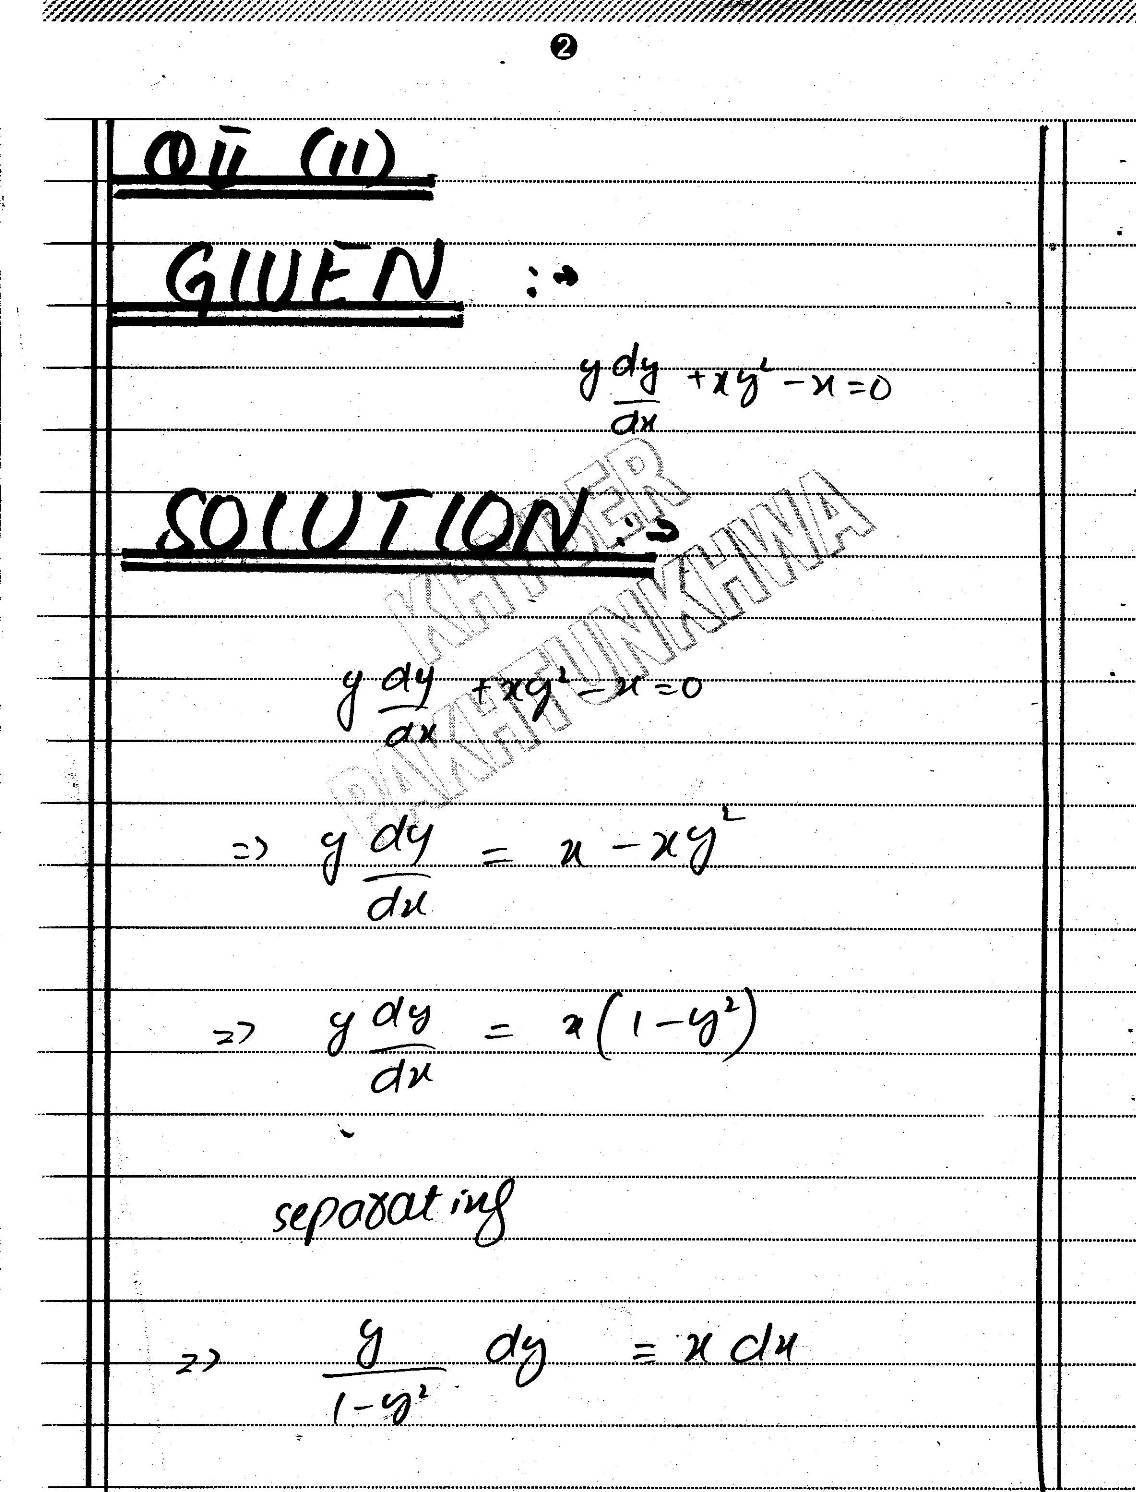 2
QII (11)
GIVEN :→
y dy/dx + xy² - x = 0
SOLUTION :→
KHYBER
PAKHTUNKHWA
y dy/dx + xy² - x = 0
=> y dy/dx = x - xy²
=> y dy/dx = x(1 - y²)
separating
=> y/1-y² dy = x dx